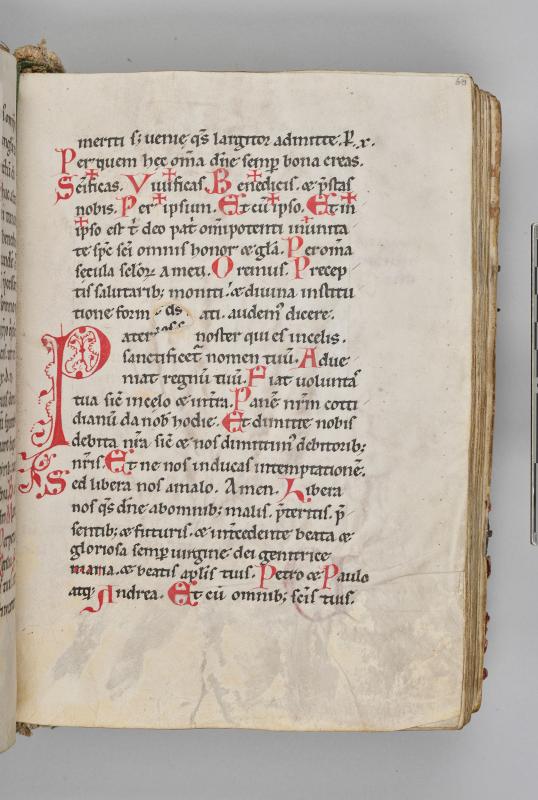 meriti s; uenie q̄s largitor admitte. P̲. x̄.
Per quem hec om̄a dn̄e semp̲ bona creas.
Sc̄ificas. Viuificas. Benedicis. & p̄stas
nobis. Per ipsum. Et cū ipso. Et in
ipso est t̄ deo pat̄ om̄ipotenti in unita
te sp̄c sc̄i omnis honor & gl̄a. Per om̄a
secula sc̄lorꝝ amen. Oremus. Precep
tis salutarib; moniti. & diuina institu
tione form ds ati. audem̄ dicere.
Pater noster qui es in celis.
sanctificet̄ nomen tuū. Adue
niat regnū tuū. Fiat uolunta
tua sic̄ in celo & in t̄ra. Panē nr̄m coti
dianū da nob̄ hodie. Et dimitte nobis
debita nr̄a sic̄ & nos dimittim̄ debitorib;
nr̄is. Et ne nos inducas in temptationē.
Sed libera nos a malo. Amen. Libera
nos q̄s dn̄e ab omnib; malis. p̄teritis. p̄
sentib; & futuris. & int̄cedente beata &
gloriosa semp̲ uirgine dei genitrice
maria. & beatis ap̄lis tuis. Petro & Paulo
atq; Andrea. Et cū omnib; sc̄is tuis.